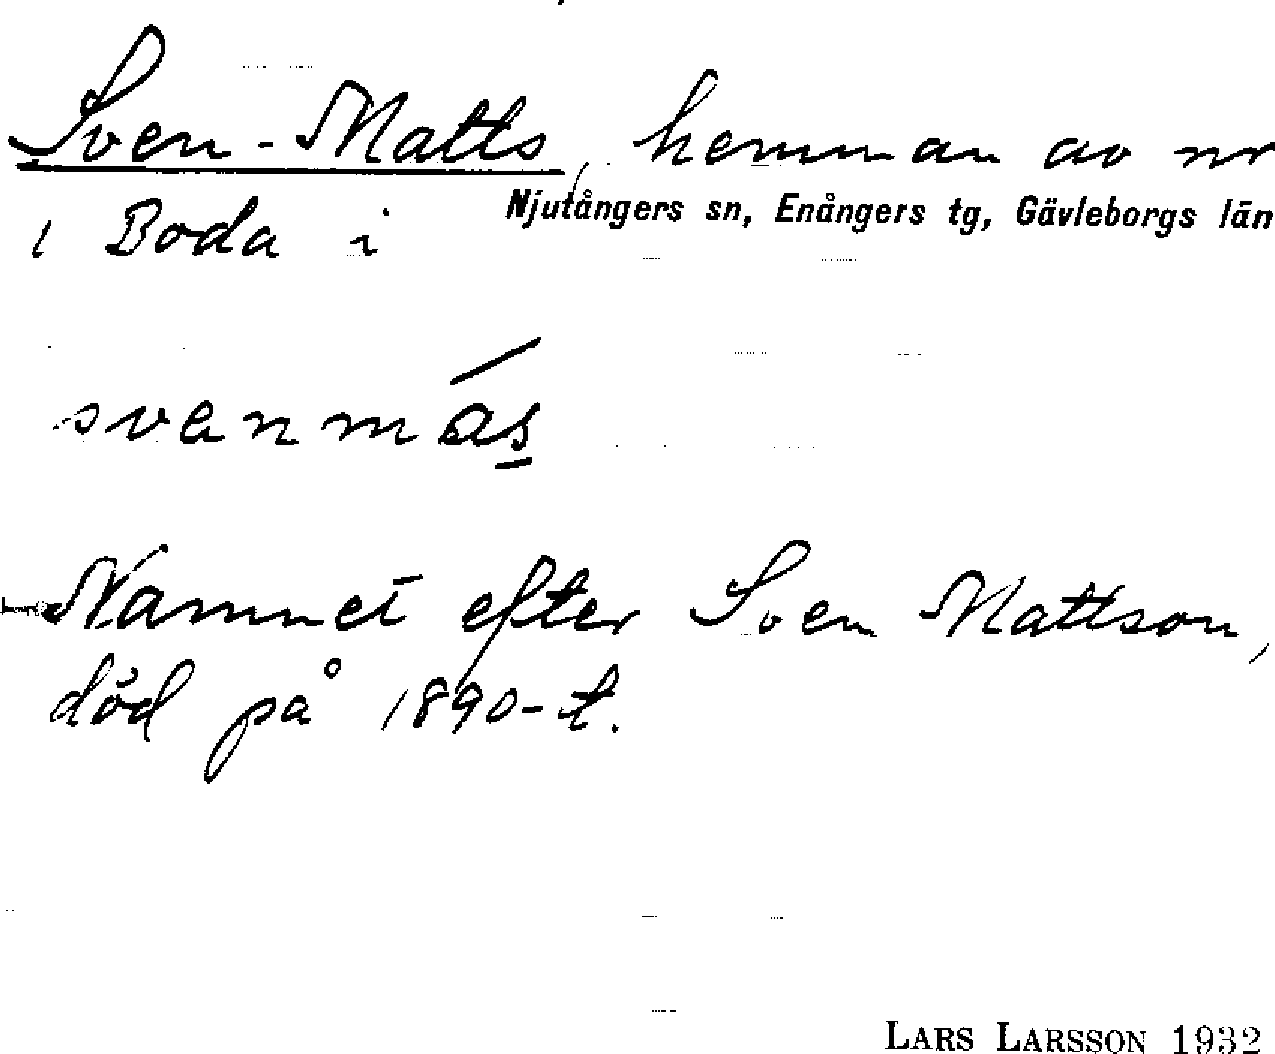 Sven-Matts, hemman av nr
1 Boda i Njutångers sn, Enångers tg, Gävleborgs län
svenmás
Namnet efter Sven Mattson,
död på 1890-t.
LARS LARSSON 1932